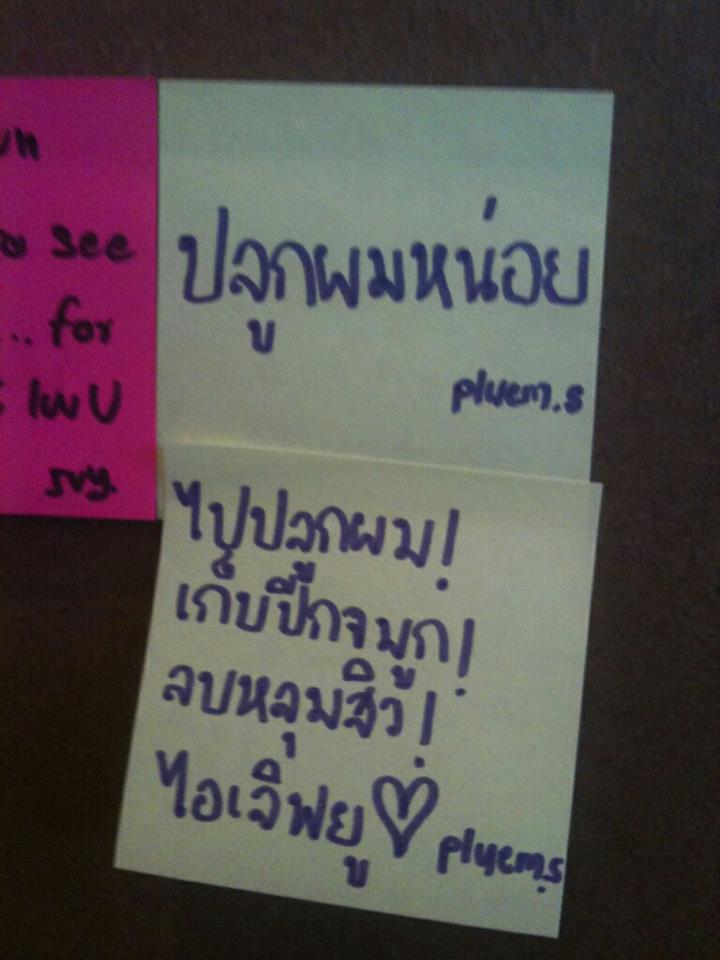 see
.. for
ปลูกผมหน่อย
pluem.s
ไปปลูกผม!
เก็บปีกจมูก!
ลบหลุมสิว!
ไอเลิฟยู♡ pluem.s